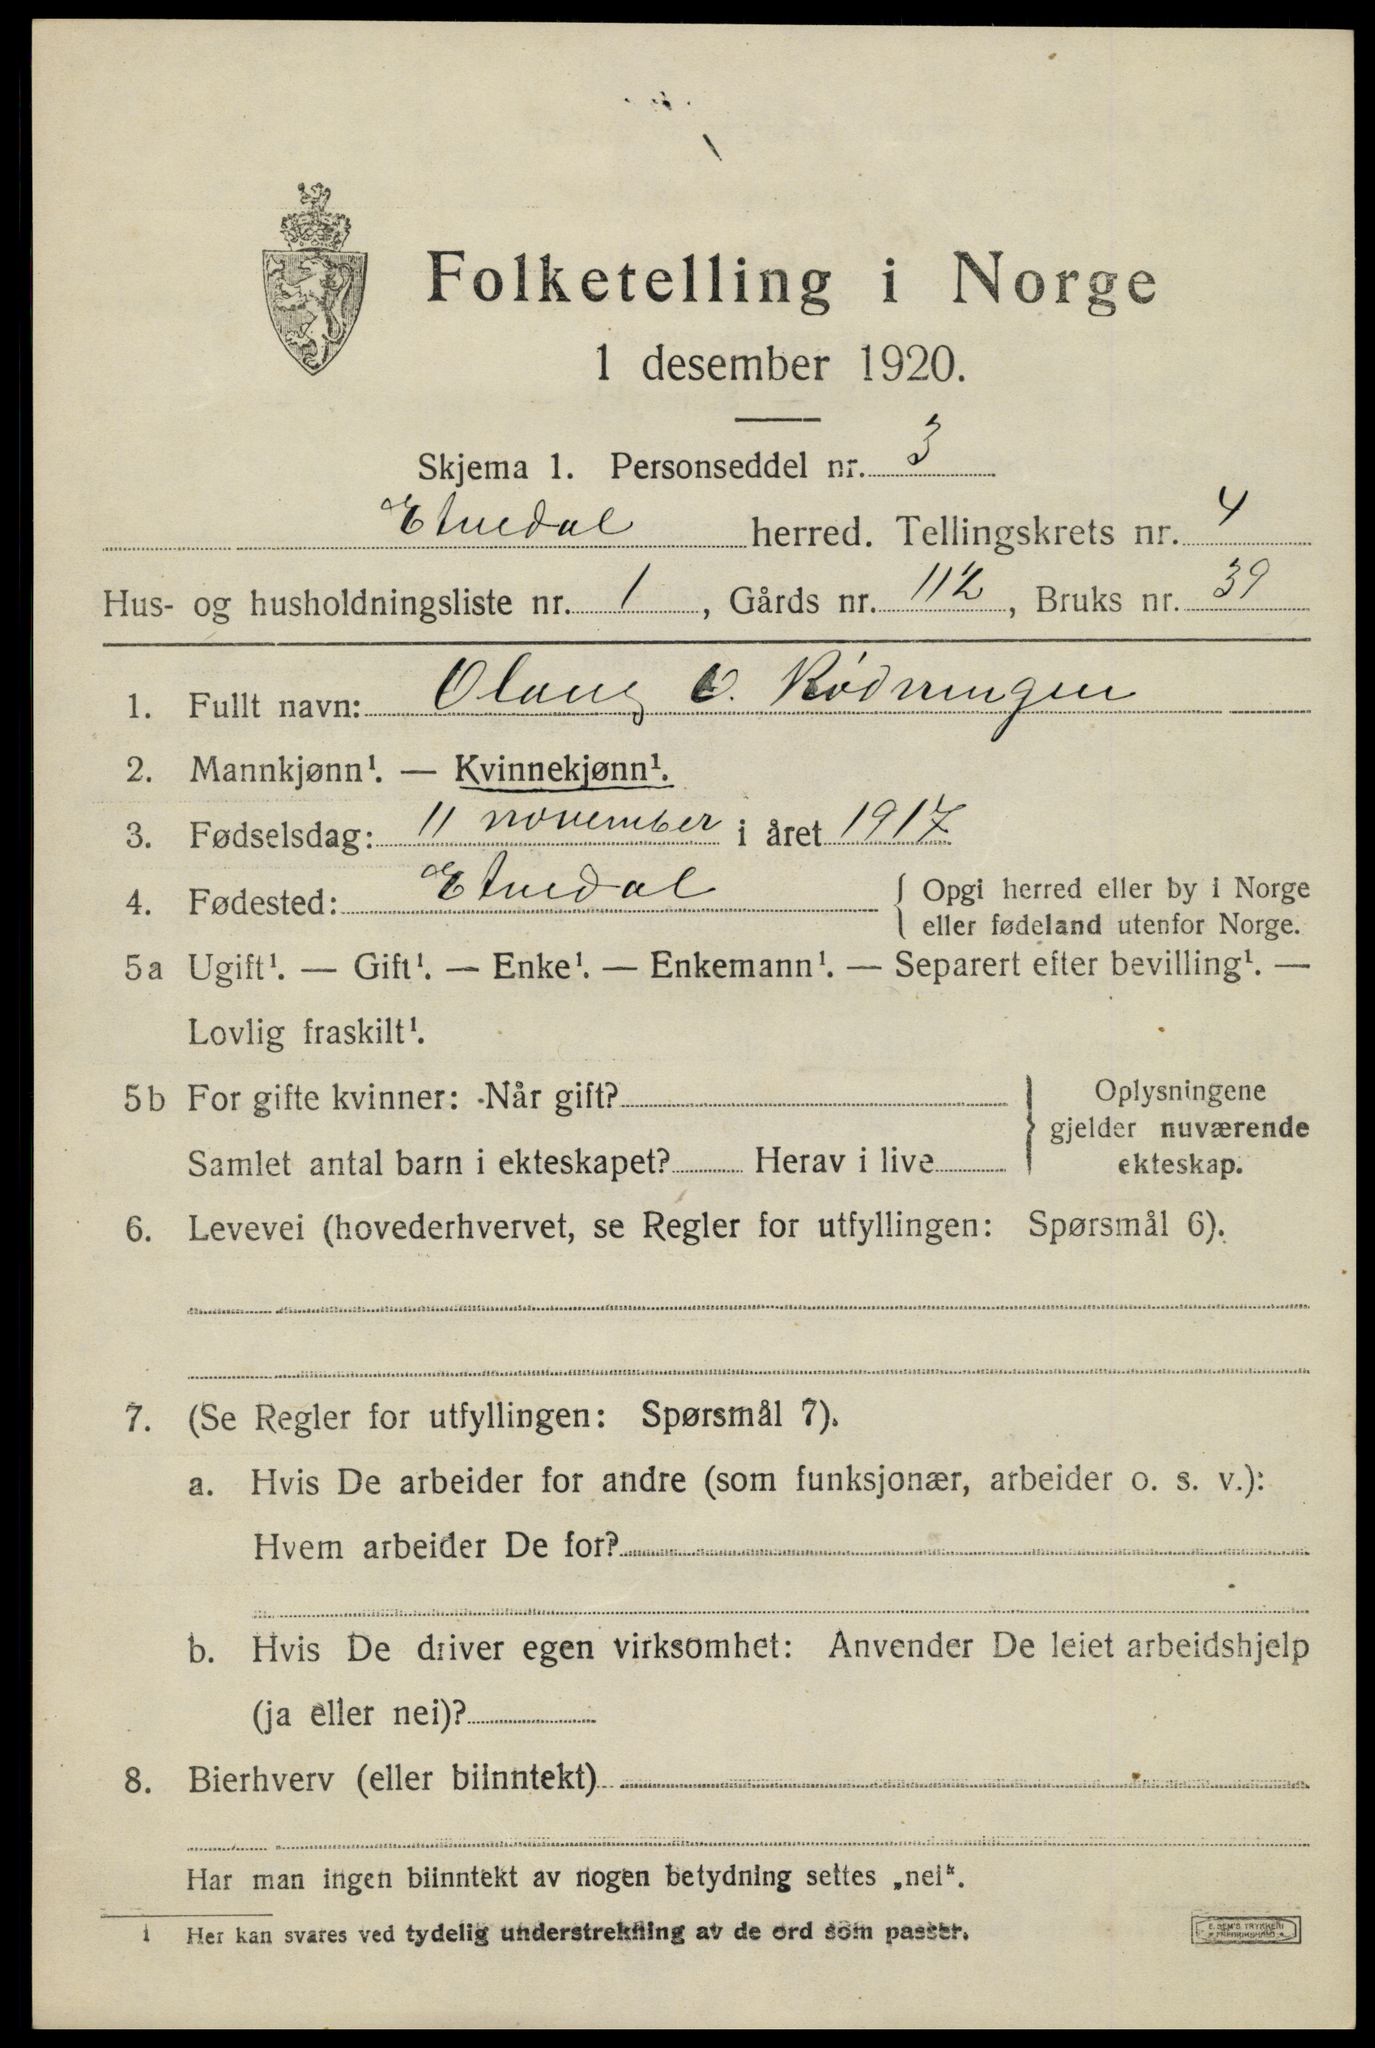 Folketelling i Norge
1 desember 1920.
Skjema 1. Personseddel nr. 3
Etnedal herred. Tellingskrets nr. 4
Hus- og husholdningsliste nr. 1, Gårds nr. 112, Bruks nr. 39
1. Fullt navn: Olaug O. Rødningen
2. Mannkjønn¹. — Kvinnekjønn¹.
3. Fødselsdag: 11 november i året 1917
4. Fødested: Etnedal { Opgi herred eller by i Norge
eller fødeland utenfor Norge.
5a Ugift¹. — Gift¹. — Enke¹. — Enkemann¹. — Separert efter bevilling¹. —
Lovlig fraskilt¹.
5b For gifte kvinner: Når gift?
Samlet antal barn i ekteskapet? Herav i live
} Oplysningene
gjelder nuværende
ekteskap.
6. Levevei (hovederhvervet, se Regler for utfyllingen: Spørsmål 6).
7. (Se Regler for utfyllingen: Spørsmål 7).
a. Hvis De arbeider for andre (som funksjonær, arbeider o. s. v.):
Hvem arbeider De for?
b. Hvis De driver egen virksomhet: Anvender De leiet arbeidshjelp
(ja eller nei)?
8. Bierhverv (eller biinntekt)
Har man ingen biinntekt av nogen betydning settes „nei“.
1 Her kan svares ved tydelig understrekning av de ord som passer.
E. SEM'S TRYKKERI
FREDRIKSHALD